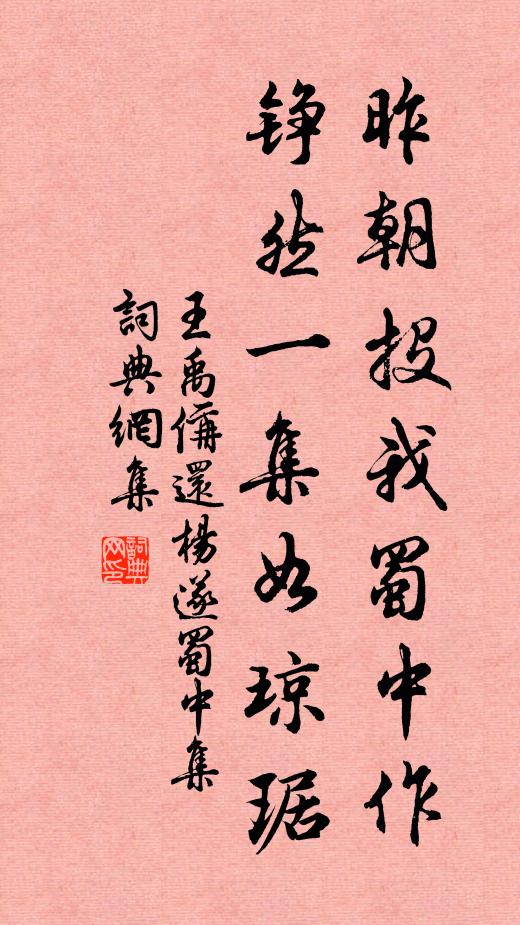 昨朝投我蜀中作
铮然一集如琼琚
王禹偁還楊遂蜀中集
詞典網集
詞典網印